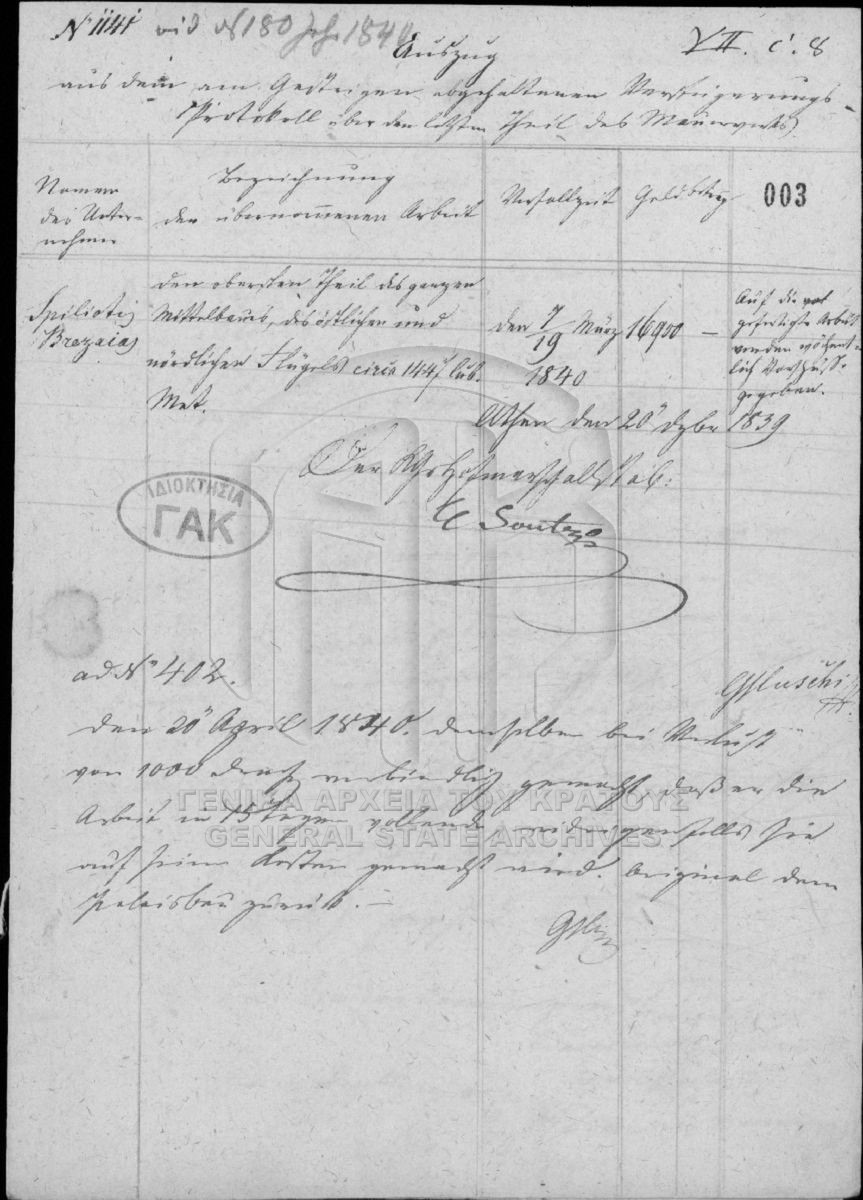 N 1141 vid N 180 1840
VII. c. 8
Auszug
aus dem am Gestrigen abgehaltenen Versteigerungs-
Protokoll über den letzten Theil des Mauerwerks
Namen
des Unter-
nehmer
Bezeichnung
der übernommenen Arbeit
Verfallzeit
Geldbetrag
003
Spiliotis
Brezaias
den obersten Theil des ganzen
Mittelbaues, des östlichen und
nördlichen Flügels circa 1447 Cub.
Met.
den 7/19 März
1840
16900 —
Auf die vor
gefertigte Arbeit
werden wöchent-
lich Vorschüsse
gegeben.
Athen den 20 Dzbr 1839
Der Kgl. Hofmarschallstab:
C Soutzo
ΙΔΙΟΚΤΗΣΙΑ
ΓΑΚ
ad N° 402.
den 20 April 1840. demselben bei Verlust
von 1000 Drach verbindlich gemacht, daß er die
Arbeit in 15 Tagen vollende widrigenfalls sie
auf seine Kosten gemacht wird. Original dem
Palaisbau zurück. —
ΓΕΝΙΚΑ ΑΡΧΕΙΑ ΤΟΥ ΚΡΑΤΟΥΣ
GENERAL STATE ARCHIVES